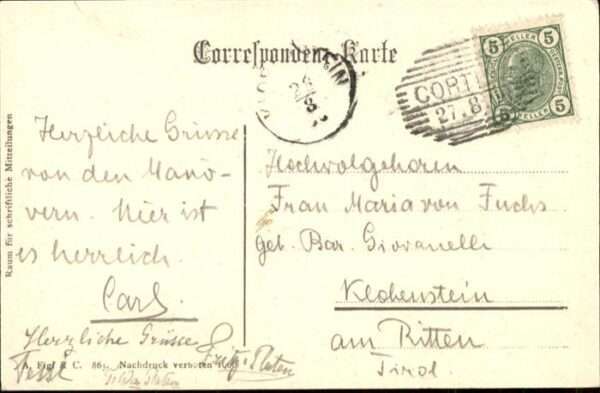 Correspondenz-Karte
5 HELLER 5
5 HELLER 5
CORTI
27.8
STEIN
28
8
Raum für schriftliche Mitteilungen
Herzliche Grüsse
von den Manö-
vern. Hier ist
es herrlich.
Carl.
Herzliche Grüsse
Hochwolgeboren
Frau Maria von Fuchs
geb. Bar. Giovanelli
Klobenstein
am Ritten
Tirol.
A. Figl & C. 86. Nachdruck verboten 1906